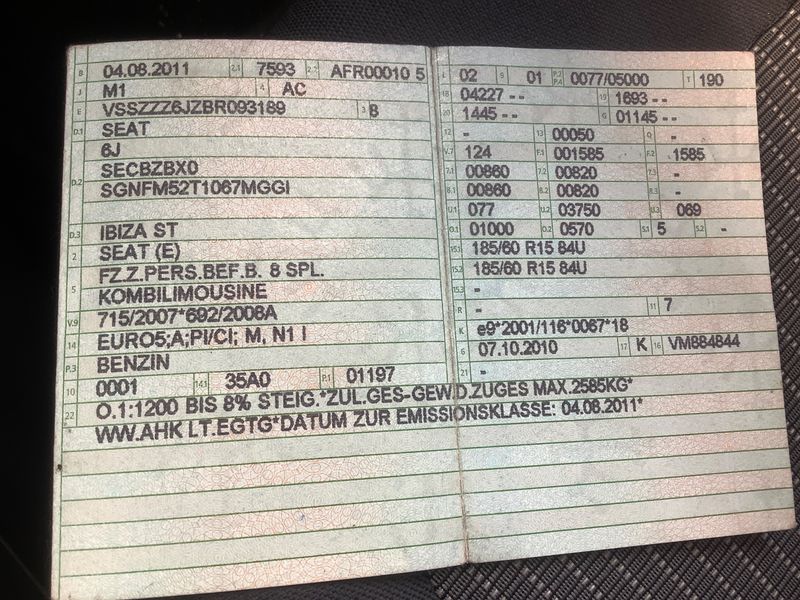 B 04.08.2011 2.1 7593 2.2 AFR00010 5
J M1 4 AC
E VSSZZZ6JZBR093189 3 B
D.1 SEAT
6J
D.2 SECBZBX0
SGNFM52T1067MGGI
D.3 IBIZA ST
2 SEAT (E)
5 FZ.Z.PERS.BEF.B. 8 SPL.
KOMBILIMOUSINE
V.9 715/2007*692/2008A
14 EURO5;A;PI/CI; M, N1 I
P.3 BENZIN
10 0001 14.1 35A0 P.1 01197
22 O.1:1200 BIS 8% STEIG.*ZUL.GES-GEW.D.ZUGES MAX.2585KG*
WW.AHK LT.EGTG*DATUM ZUR EMISSIONSKLASSE: 04.08.2011*
L 02 9 01 P.2 P.4 0077/05000 T 190
18 04227 - - 19 1693 - -
20 1445 - - G 01145 - -
12 - 13 00050 Q -
V.7 124 F.1 001585 F.2 1585
7.1 00860 7.2 00820 7.3 -
8.1 00860 8.2 00820 8.3 -
U.1 077 U.2 03750 U.3 069
O.1 01000 O.2 0570 S.1 5 S.2 -
15.1 185/60 R15 84U
15.2 185/60 R15 84U
-
R - 11 7
K e9*2001/116*0067*18
6 07.10.2010 17 K 16 VM884844
21 -